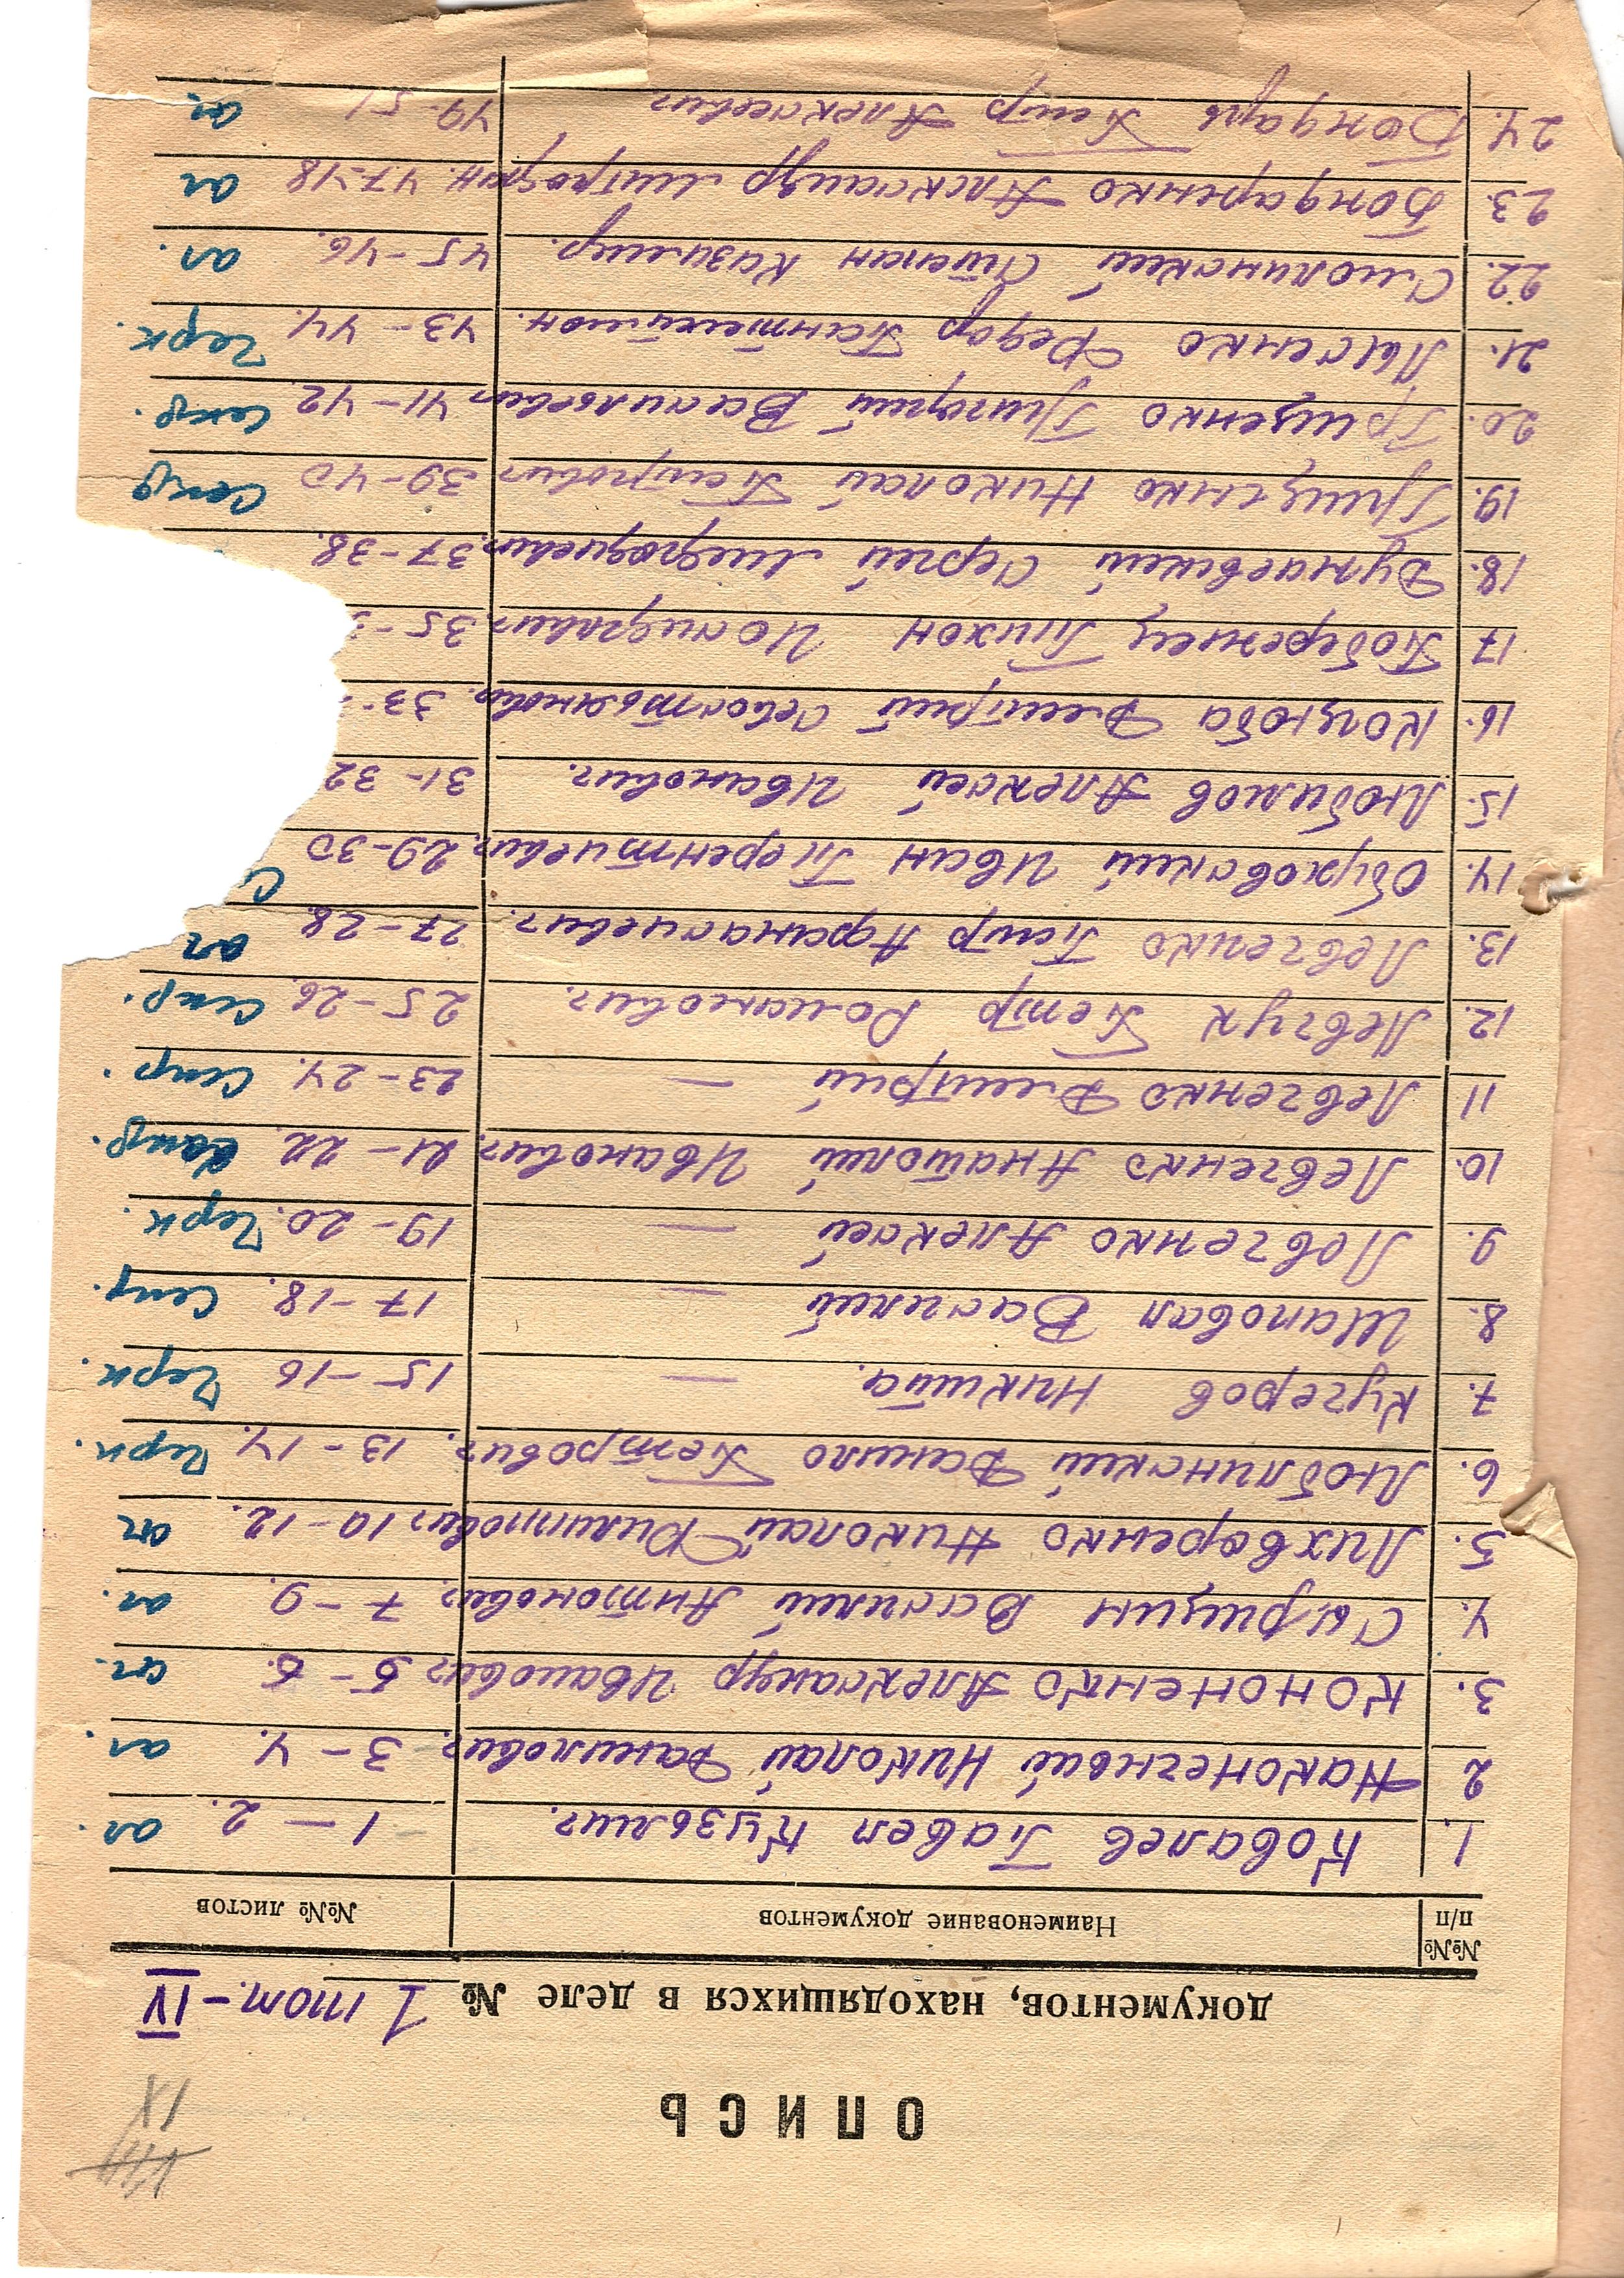 XI
ОПИСЬ
документов, находящихся в деле № 1 том - IV
№№ п/п Наименование документов №№ листов
1. Ковалев Павел Кузьмич. 1 - 2. ал.
2 Наконечный Николай Данилович. 3 - 4. ал.
3. Кононенко Александр Иванович 5 - 6. ал.
4. Сырицин Василий Антонович. 7 - 9. ал.
5. Лихваренко Николай Филиппович 10 - 12. ал
6. Люблинский Данило Петрович. 13 - 14. Черк.
7. Кучеров Никита. — 15 - 16 Черк.
8. Шаповал Василий — 17 - 18. Сткр.
9. Левченко Алексей — 19 - 20. Черк.
10. Левченко Анатолий Иванович. 21 - 22.
11 Левченко Дмитрий — 23 - 24. Сткр.
12. Левчук Петр Романович. 25 - 26. Сткр.
13. Левченко Петр Афанасиевич. 27 - 28. ал
14. Обуховский Иван Терентиевич. 29 - 30 С
15. Любимов Алексей Иванович. 31 - 32
16. Коцюба Дмитрий Севостьянович. 33 -
17 Побережнец Тихон Иолидрович. 35 -
18. Думаевский Сергей Мефодиевич. 37 - 38.
19. Грищенко Николай Петрович 39 - 40
20. Грищенко Григорий Васильевич 41 - 42
21. Лысенко Федор Пантелеймон. 43 - 44. Черк.
22. Смолинский Степан Казимир. 45 - 46. ал.
23. Бондаренко Александр Митрофан. 47-48 ал
24. Бондарь Петр Алексеевич 49 - 51 ал.